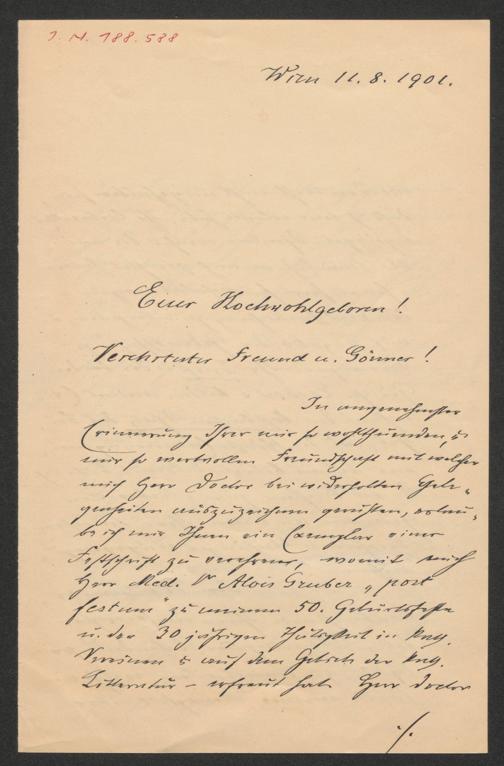 I. N. 188.588
Wien 11.8.1901.
Euer Hochwohlgeboren!
Verehrtester Freund u. Gönner!
In angenehmster
Erinnerung Ihrer mir so wohlthuenden, &
mir so wertvollen Freundschaft mit welcher
mich Herr Doctor bei widerholten Gele-
genheiten auszuzeichnen geruhten, erlau-
be ich mir Ihnen ein Exemplar einer
Festschrift zu verehren, womit mich
Herr Med. Dr Alois Gruber „post
festum" zu meinem 50. Geburtsfeste
u. der 30 jährigen Thätigkeit in
Vereinen & auf dem Gebiete der
Litteratur – erfreut hat. Herr Doctor
./.